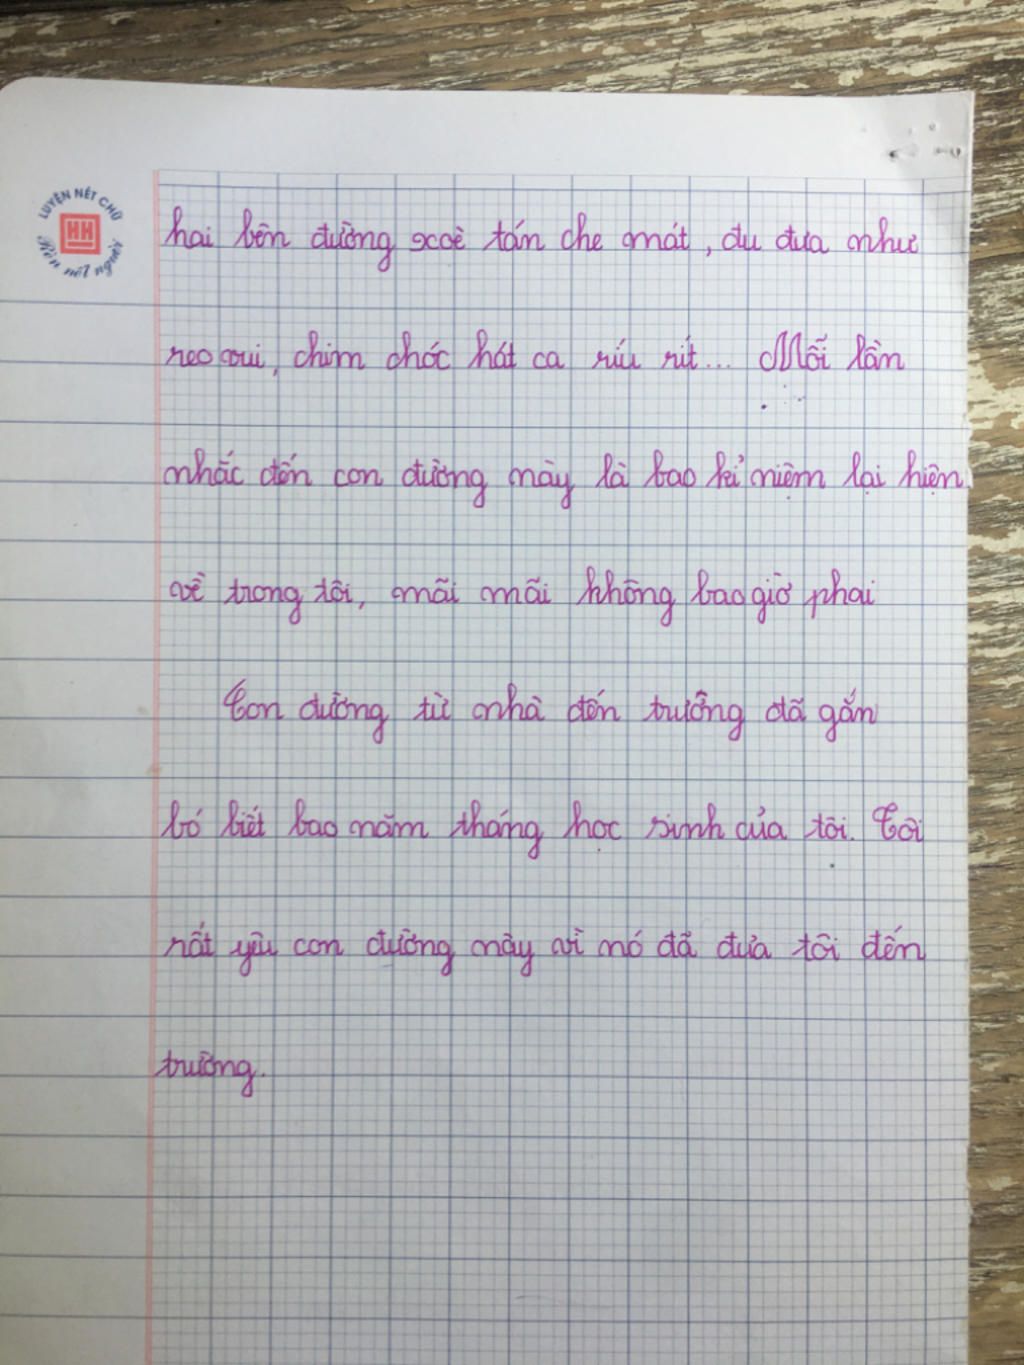 LUYỆN NÉT CHỮ
HH
Rèn nết người
hai bên đường xoè tán che mát, đu đưa như
reo vui, chim chóc hát ca ríu rít... Mỗi lần
nhắc đến con đường này là bao kỉ niệm lại hiện
về trong tôi, mãi mãi không bao giờ phai
Con đường từ nhà đến trường đã gắn
bó biết bao năm tháng học sinh của tôi. Tôi
rất yêu con đường này vì nó đã đưa tôi đến
trường.